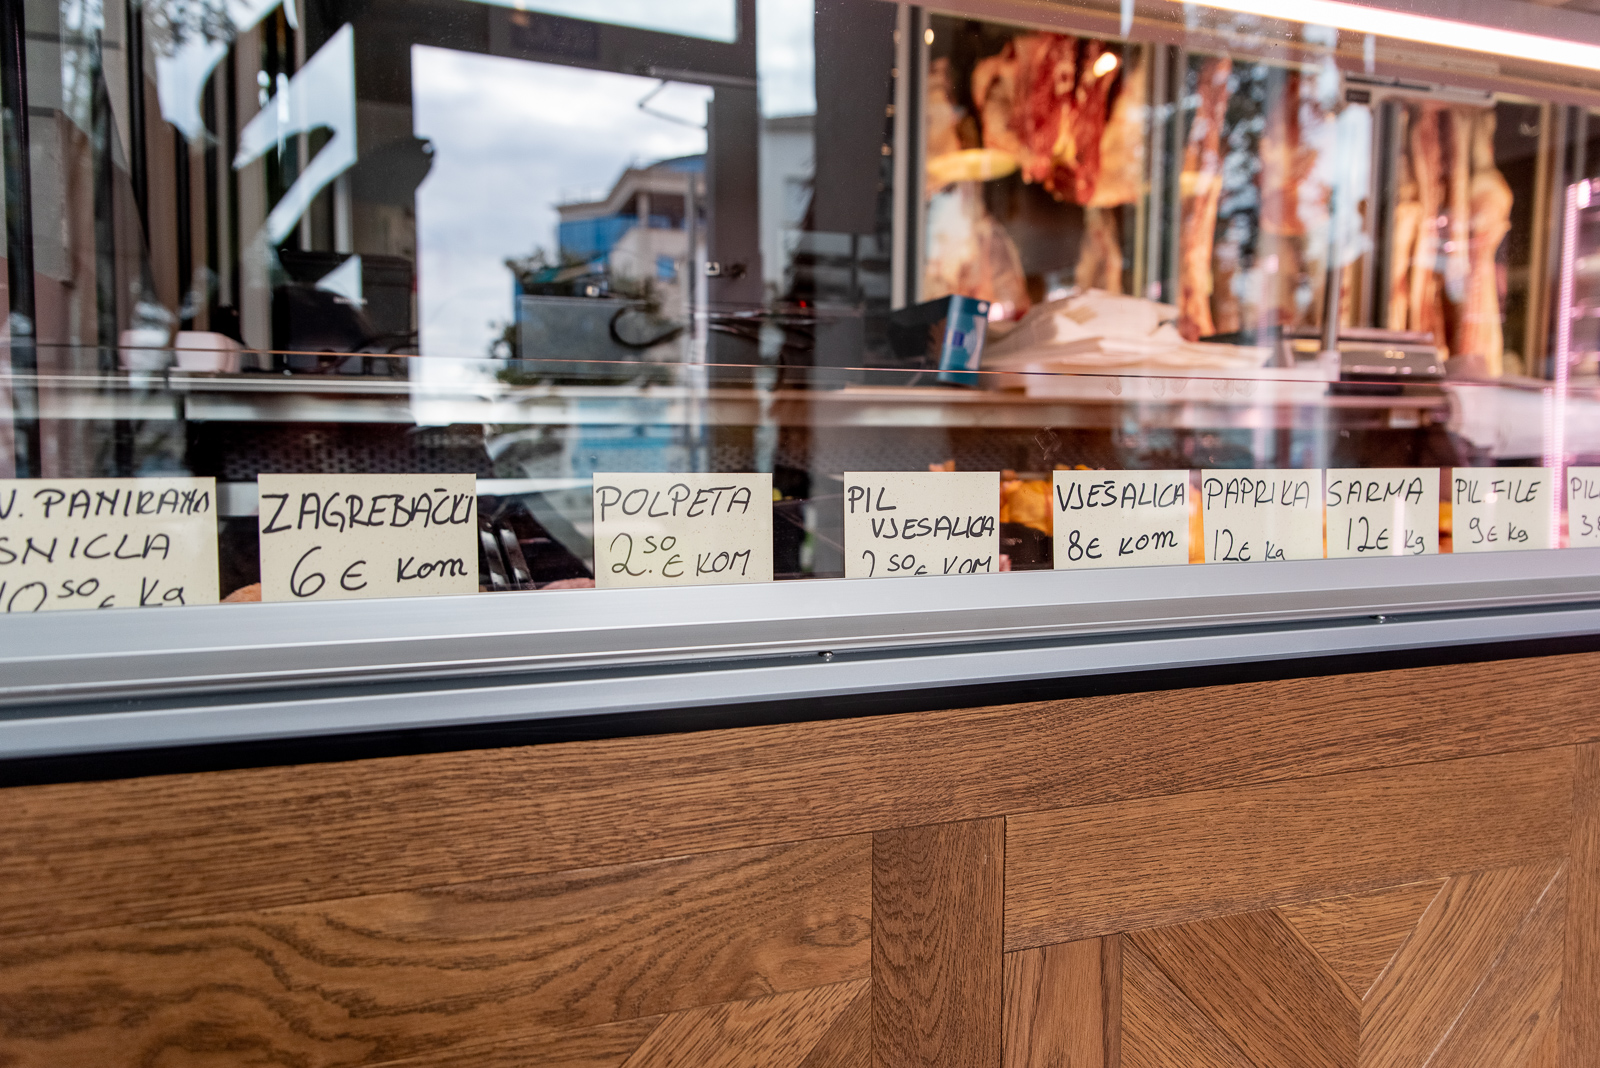 V. PANIRANA
SNICLA
10 50 € Kg
ZAGREBAČKI
6 € Kom
POLPETA
2.50 € KOM
PIL
VJESALICA
2 50 € KOM
VJEŠALICA
8€ Kom
PAPRIKA
12€ Kg
SARMA
12€ Kg
PIL FILE
9€ Kg
PIL